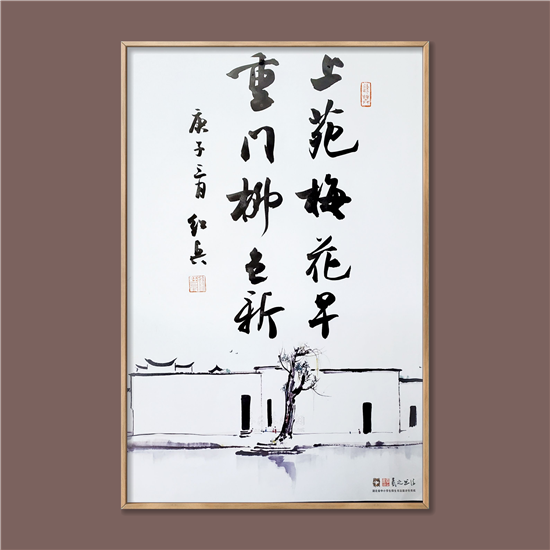 上苑梅花早
重门柳色新
庚子三月 红兵
羲之书法